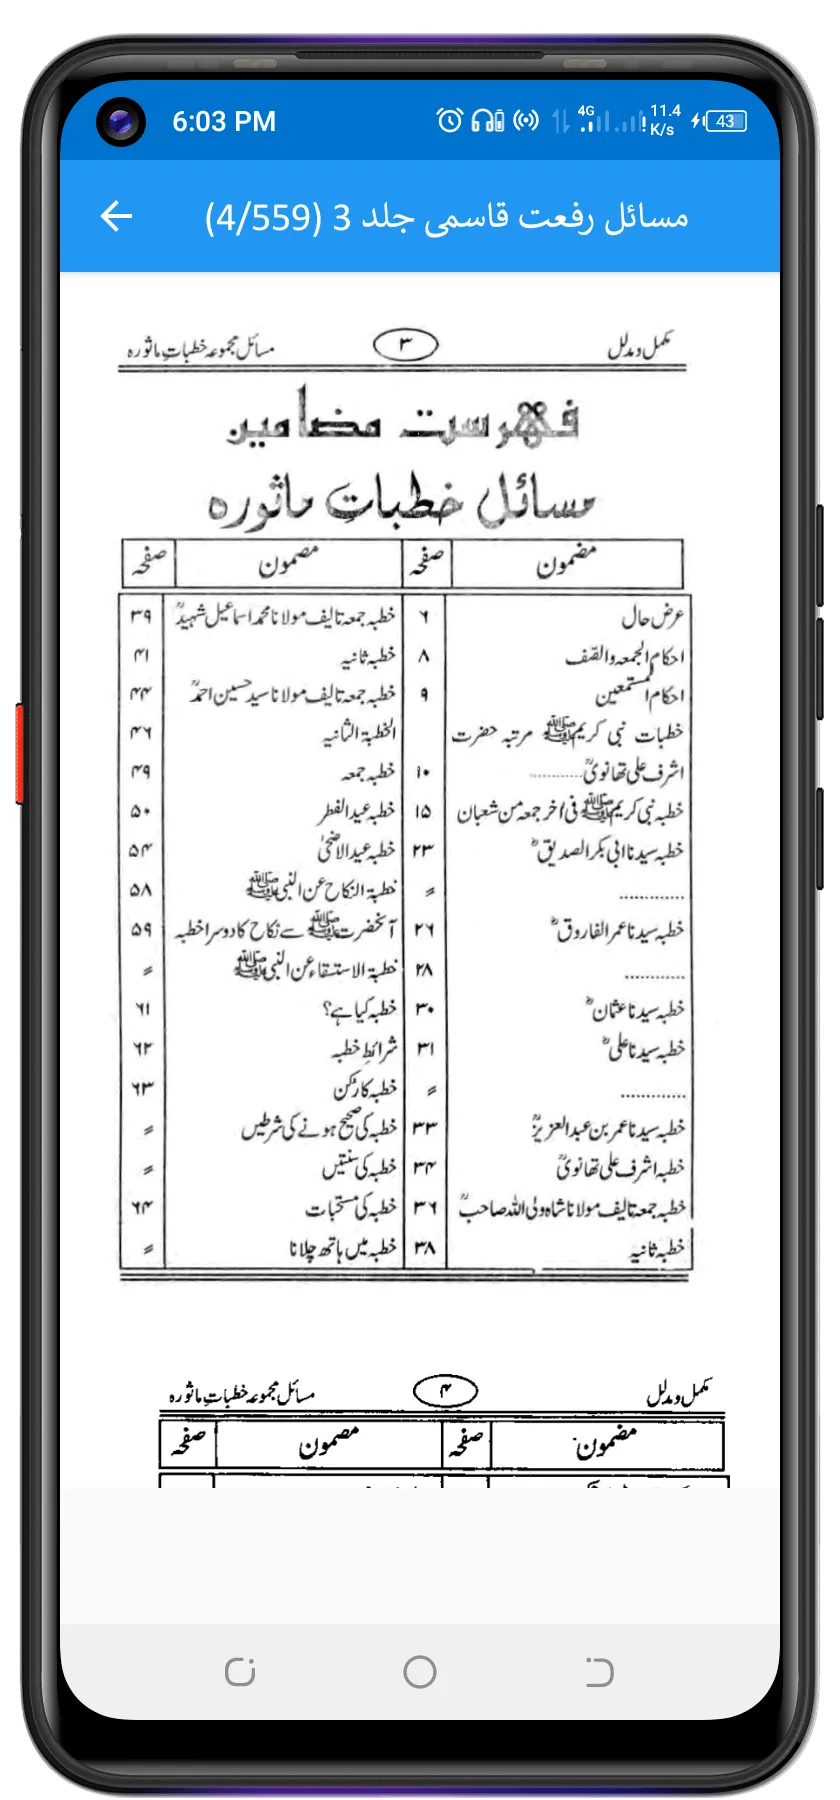 6:03 PM
4G 11.4 K/s 43
مسائل رفعت قاسمی جلد 3 (4/559)
مکمل و مدلل ۳ مسائل مجموعہ خطبات ماثورہ
فہرست مضامین
مسائل خطباتِ ماثورہ
مضمون صفحہ مضمون صفحہ
عرض حال ۶ خطبہ جمعہ تالیف مولانا محمد اسماعیل شہیدؒ ۳۹
احکام الجمعہ والصّف ۸ خطبہ ثانیہ ۴۱
احکام المستمعین ۹ خطبہ جمعہ تالیف مولانا سید حسین احمدؒ ۴۴
خطبات نبی کریم ﷺ مرتبہ حضرت الخطبۃ الثانیہ ۴۶
اشرف علی تھانویؒ............ ۱۰ خطبہ جمعہ ۴۹
خطبہ نبی کریم ﷺ فی اخر جمعہ من شعبان ۱۵ خطبہ عید الفطر ۵۰
خطبہ سیدنا ابی بکر الصدیقؓ ۲۳ خطبہ عید الاضحیٰ ۵۴
............. 〃 خطبۃ النکاح عن النبی ﷺ ۵۸
خطبہ سیدنا عمر الفاروقؓ ۲۶ آنحضرت ﷺ سے نکاح کا دوسرا خطبہ ۵۹
............ ۲۸ خطبۃ الاستسقاء عن النبی ﷺ 〃
خطبہ سیدنا عثمانؓ ۳۰ خطبہ کیا ہے؟ ۶۱
خطبہ سیدنا علیؓ ۳۱ شرائطِ خطبہ ۶۲
............. 〃 خطبہ کا رُکن ۶۳
خطبہ سیدنا عمر بن عبدالعزیزؒ ۳۳ خطبہ کی صحیح ہونے کی شرطیں 〃
خطبہ اشرف علی تھانویؒ ۳۴ خطبہ کی سنتیں 〃
خطبہ جمعہ تالیف مولانا شاہ ولی اللہ صاحبؒ ۳۶ خطبہ کی مستحبات ۶۴
خطبہ ثانیہ ۳۸ خطبہ میں ہاتھ چلانا 〃
مکمل و مدلل ۴ مسائل مجموعہ خطبات ماثورہ
مضمون صفحہ مضمون صفحہ